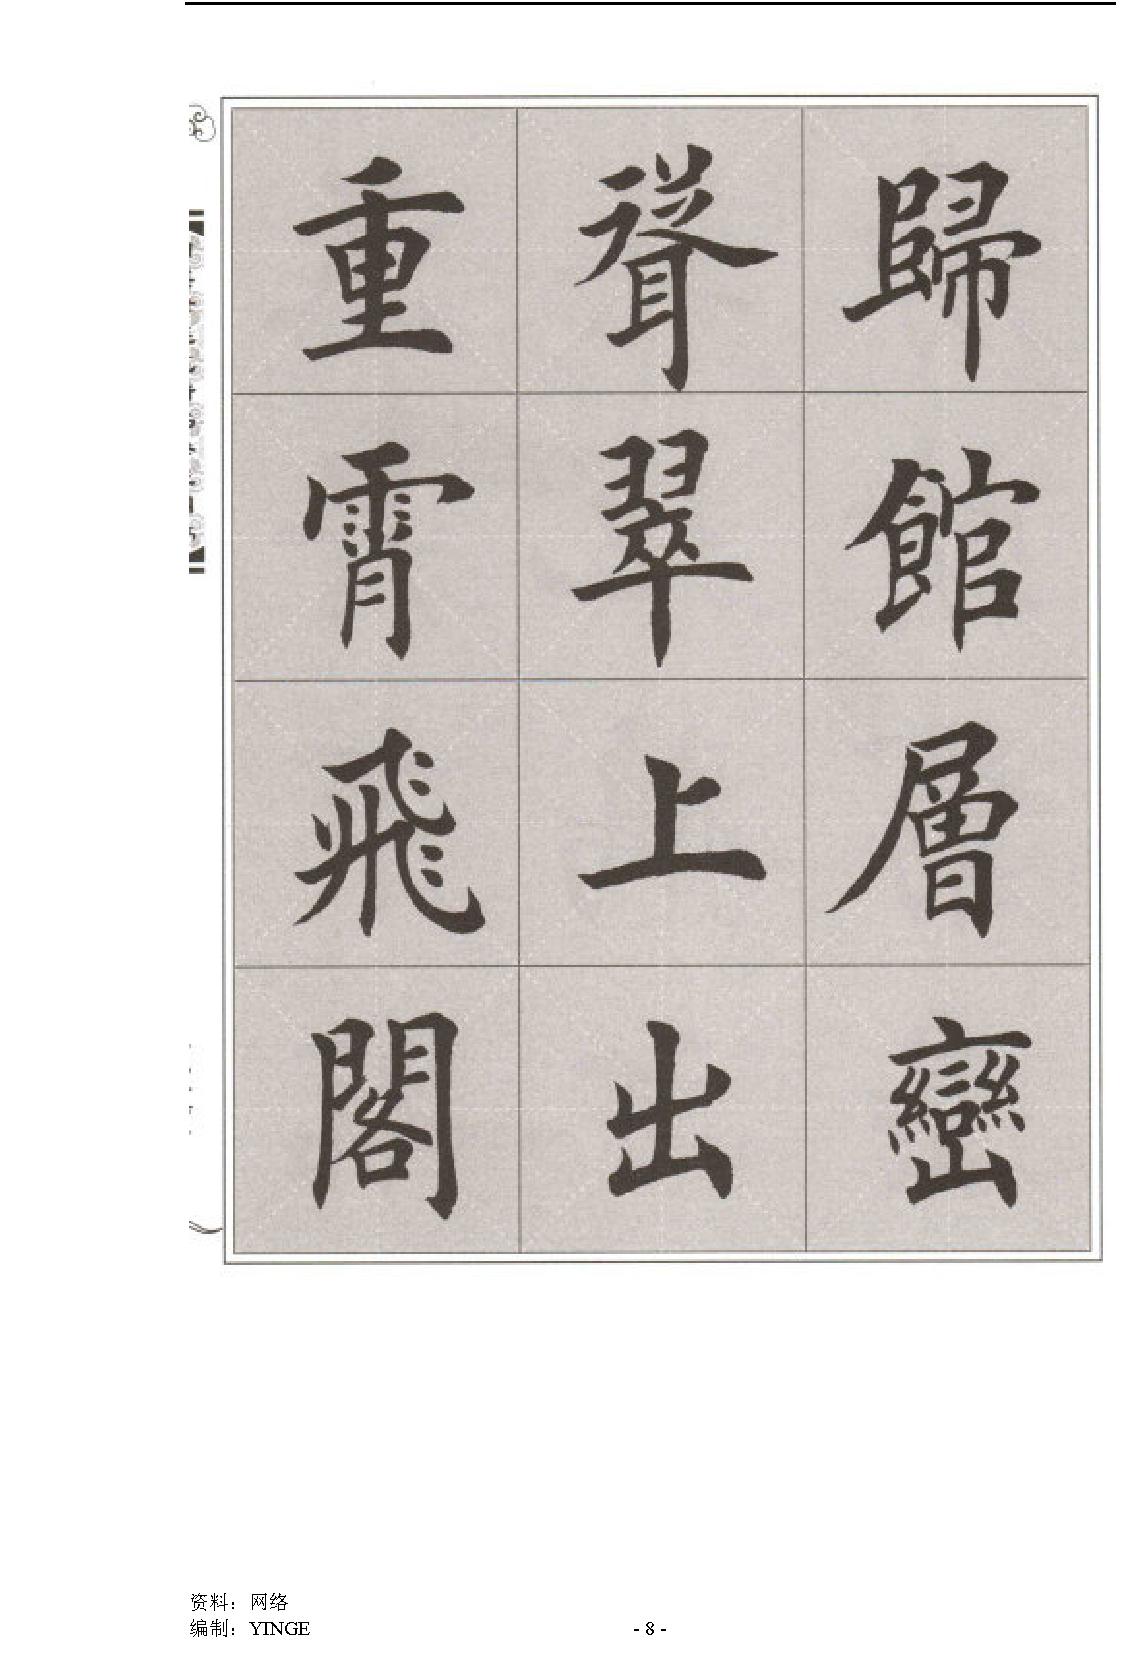 歸館層巒
聳翠上出
重霄飛閣
资料：网络
编制：YINGE
- 8 -